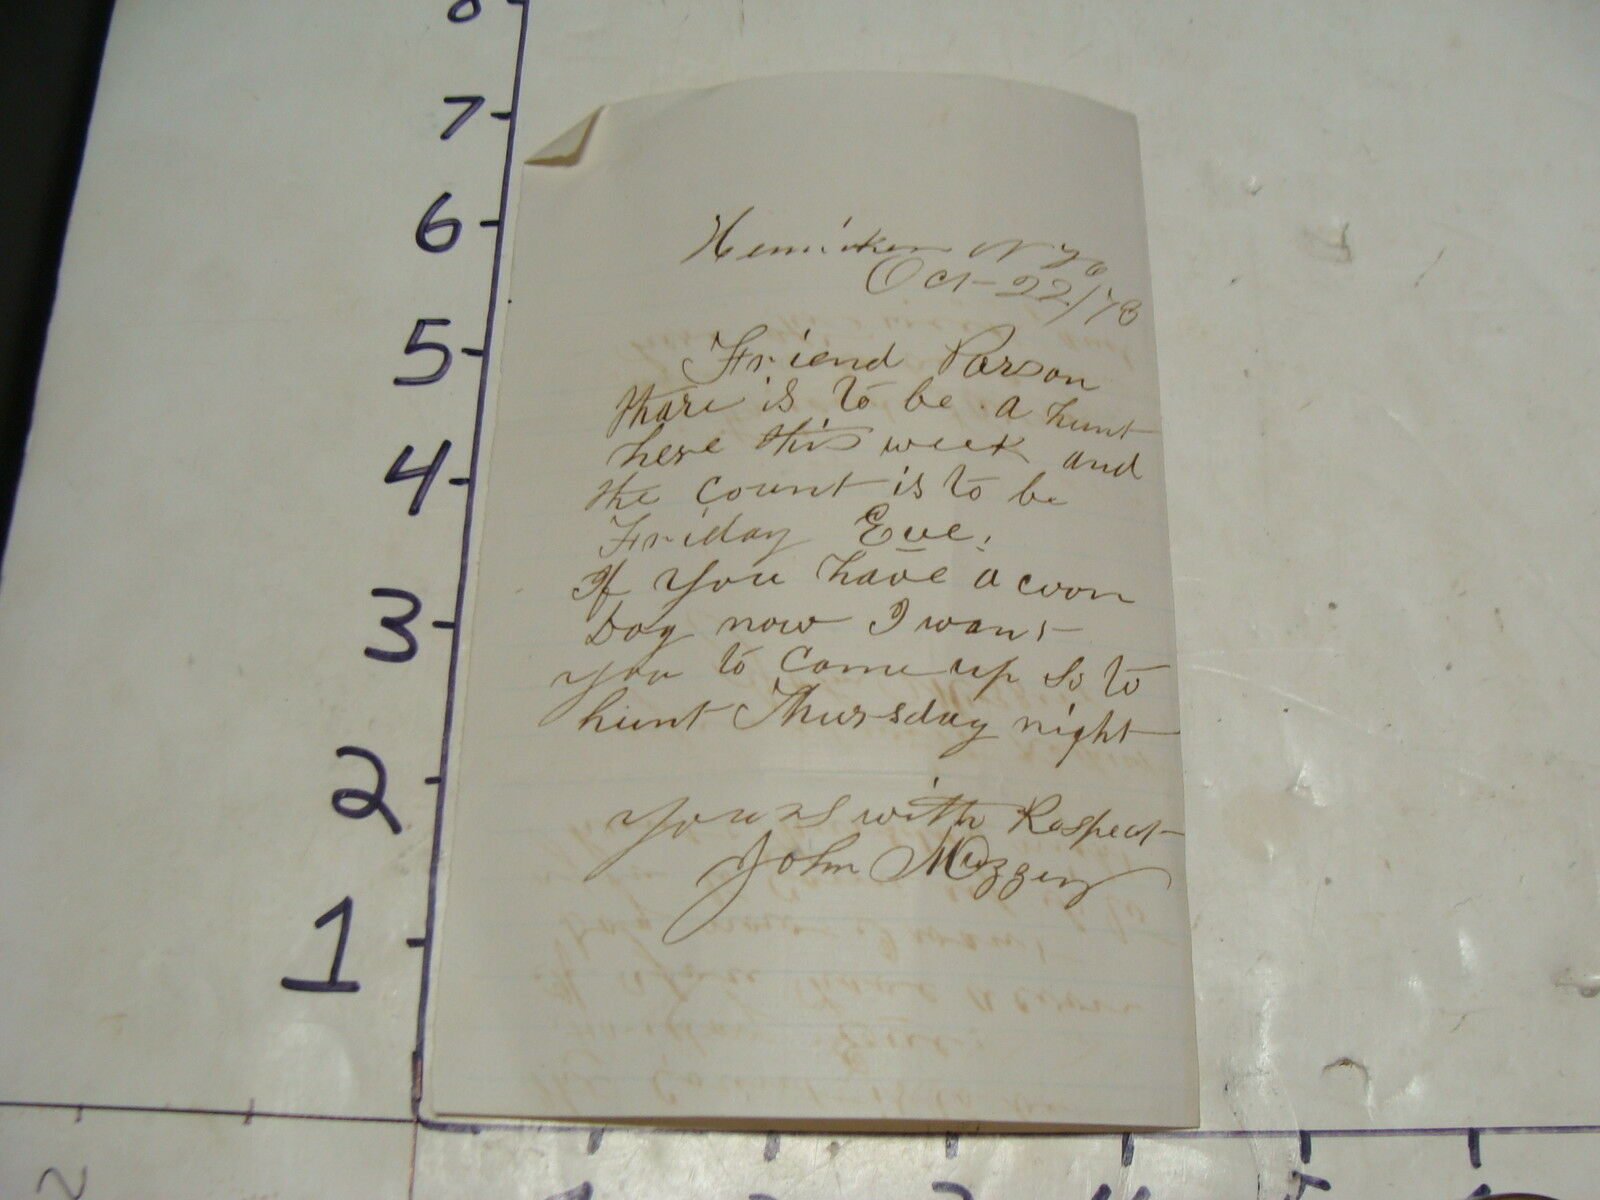 8
7
6
5
4
3
2
1
Henniker N
Oct 22/78
Friend Parson
thare is to be a hunt
here this week and
the Count is to be
Friday Eve.
If you have a coon
Dog now I want
you to Come up So to
hunt Thursday night
Yours with Respect
John
2
1
2
3
4
5
6